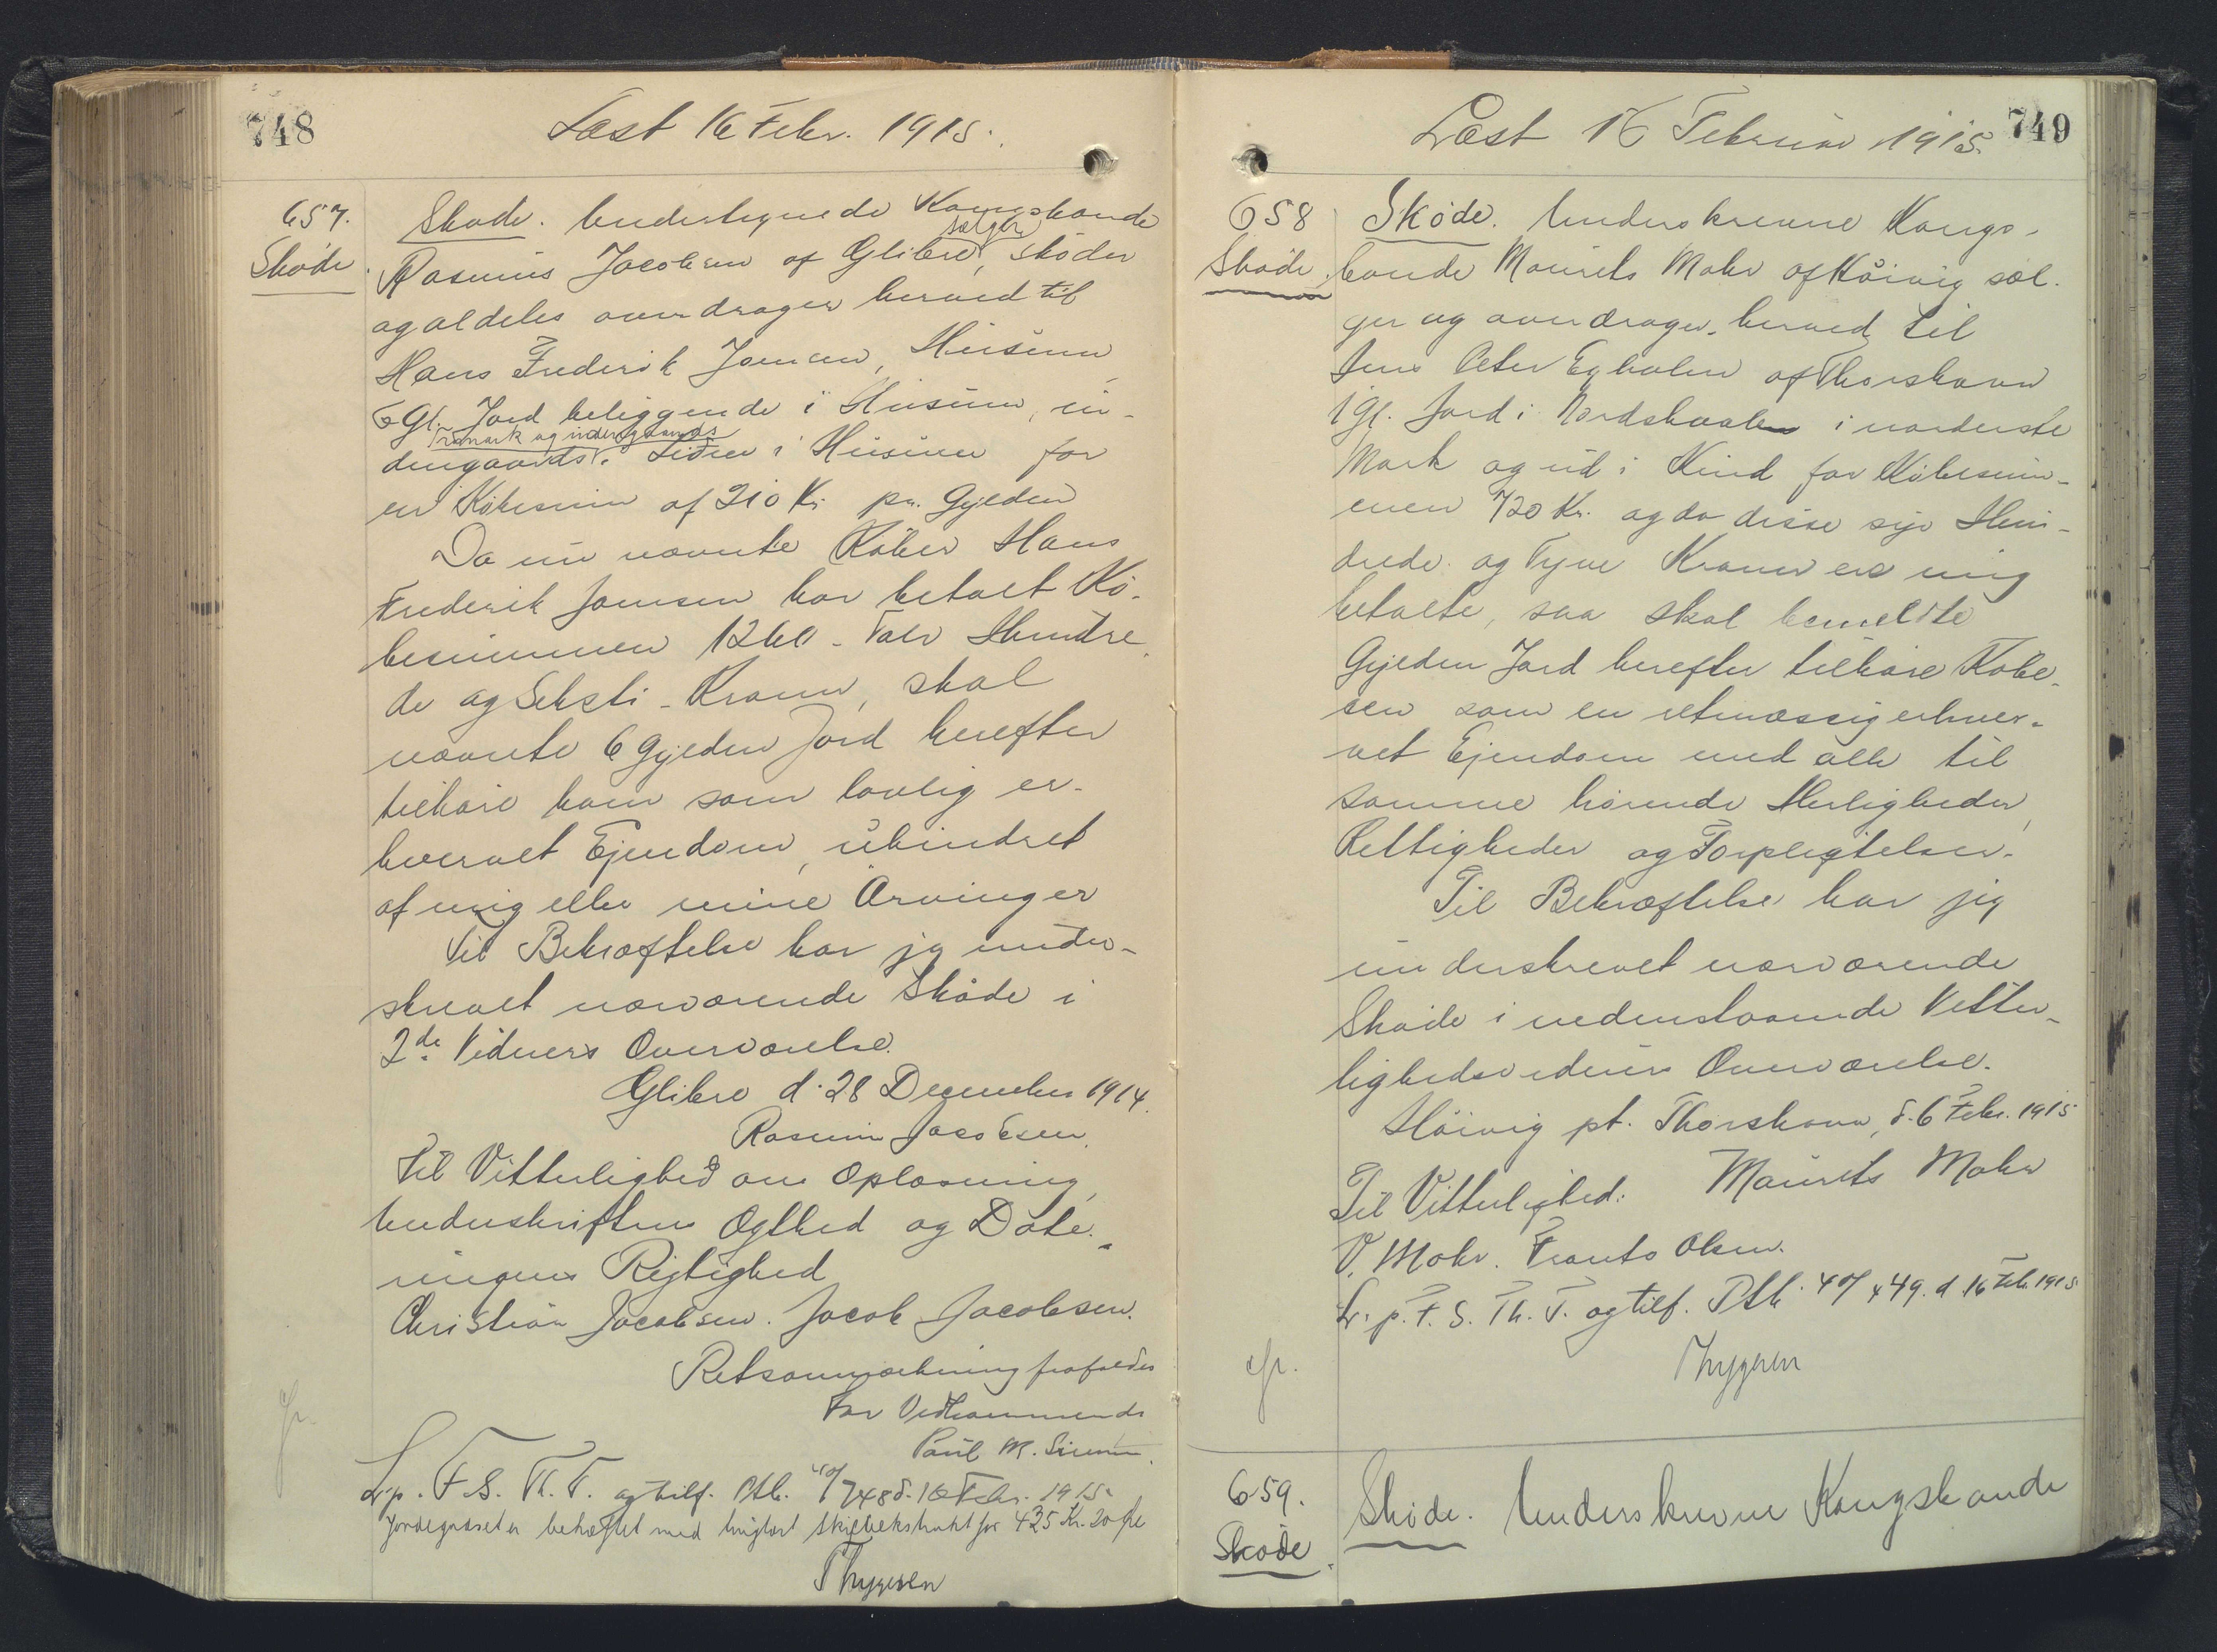 748
Læst 16 Febr. 1915.
657.
Skøde.
Skøde. Undertegnede Kongsbonde
Rasmus Jacobsen af Glibre sælger, skøder
og aldeles overdrager herved til
Hans Frederik Joensen, Húsum,
6 Gl. Jord beliggende i Húsum, in-
dengaards i Trømark og udengaards Liden i Húsum for
en Købesum af 210 Kr. pr. Gylden
Da nu nævnte Køber Hans
Frederik Joensen har betalt Kø-
besummen 1260 - Tolv Hundre-
de og Seksti - Kroner, skal
nævnte 6 Gylden Jord herefter
tilhøre ham som lovlig er-
hvervet Ejendom, uhindret
af mig eller mine Arvinger
Til Bekræftelse har jeg under-
skrevet nærværende Skøde i
2de Vidners Overværelse.
Glibre d. 28 December 1914.
Rasmus Jacobsen.
Til Vitterlighed om Oplæsning,
Underskriftens Ægthed og Date-
ringens Rigtighed
Christian Jacobsen. Jacob Jacobsen.
Retsanmærkning frafaldes
For Vedkommende
Poul M.
L. p. F. S. Th. T. og tilf. Ptb. 4 of 748 d. 16 Febr. 1915.
Jordegodset er behæftet med tinglæst Skifteekstrakt for 435 Kr. 20 Øre
Thygesen
cfr.
749
Læst 16 Februar 1915.
658
Skøde.
Skøde. Underskrevne Kongs-
bonde Maurits Mohr af Höivig sæl-
ger og overdrager herved til
Jens Peter Egholm af Thorshavn
1 Gl. Jord i Nordskaale i norderste
Mark og ud i Kind for Købesum-
men 720 Kr. og da disse syv Hun-
drede og Tyve Kroner er mig
betalte, saa skal bemeldte
Gylden Jord herefter tilhøre Købe-
ren som en retmæssig erhver-
vet Ejendom med alle til
samme hørende Herligheder,
Rettigheder og Forpligtelser.
Til Bekræftelse har jeg
underskrevet nærværende
Skøde i nedenstaaende Vitter-
lighedsvidners Overværelse.
Höivig pt. Thorshavn, d. 6 Febr. 1915
Til Vitterlighed: Maurits Mohr
V. Mohr. Frants Olsen.
L. p. F. S. Th. T. og tilf. Ptb. 4 of 449. d. 16 Feb. 1915
Thygesen
cfr.
659.
Skøde.
Skøde. Underskrevne Kongsbonde